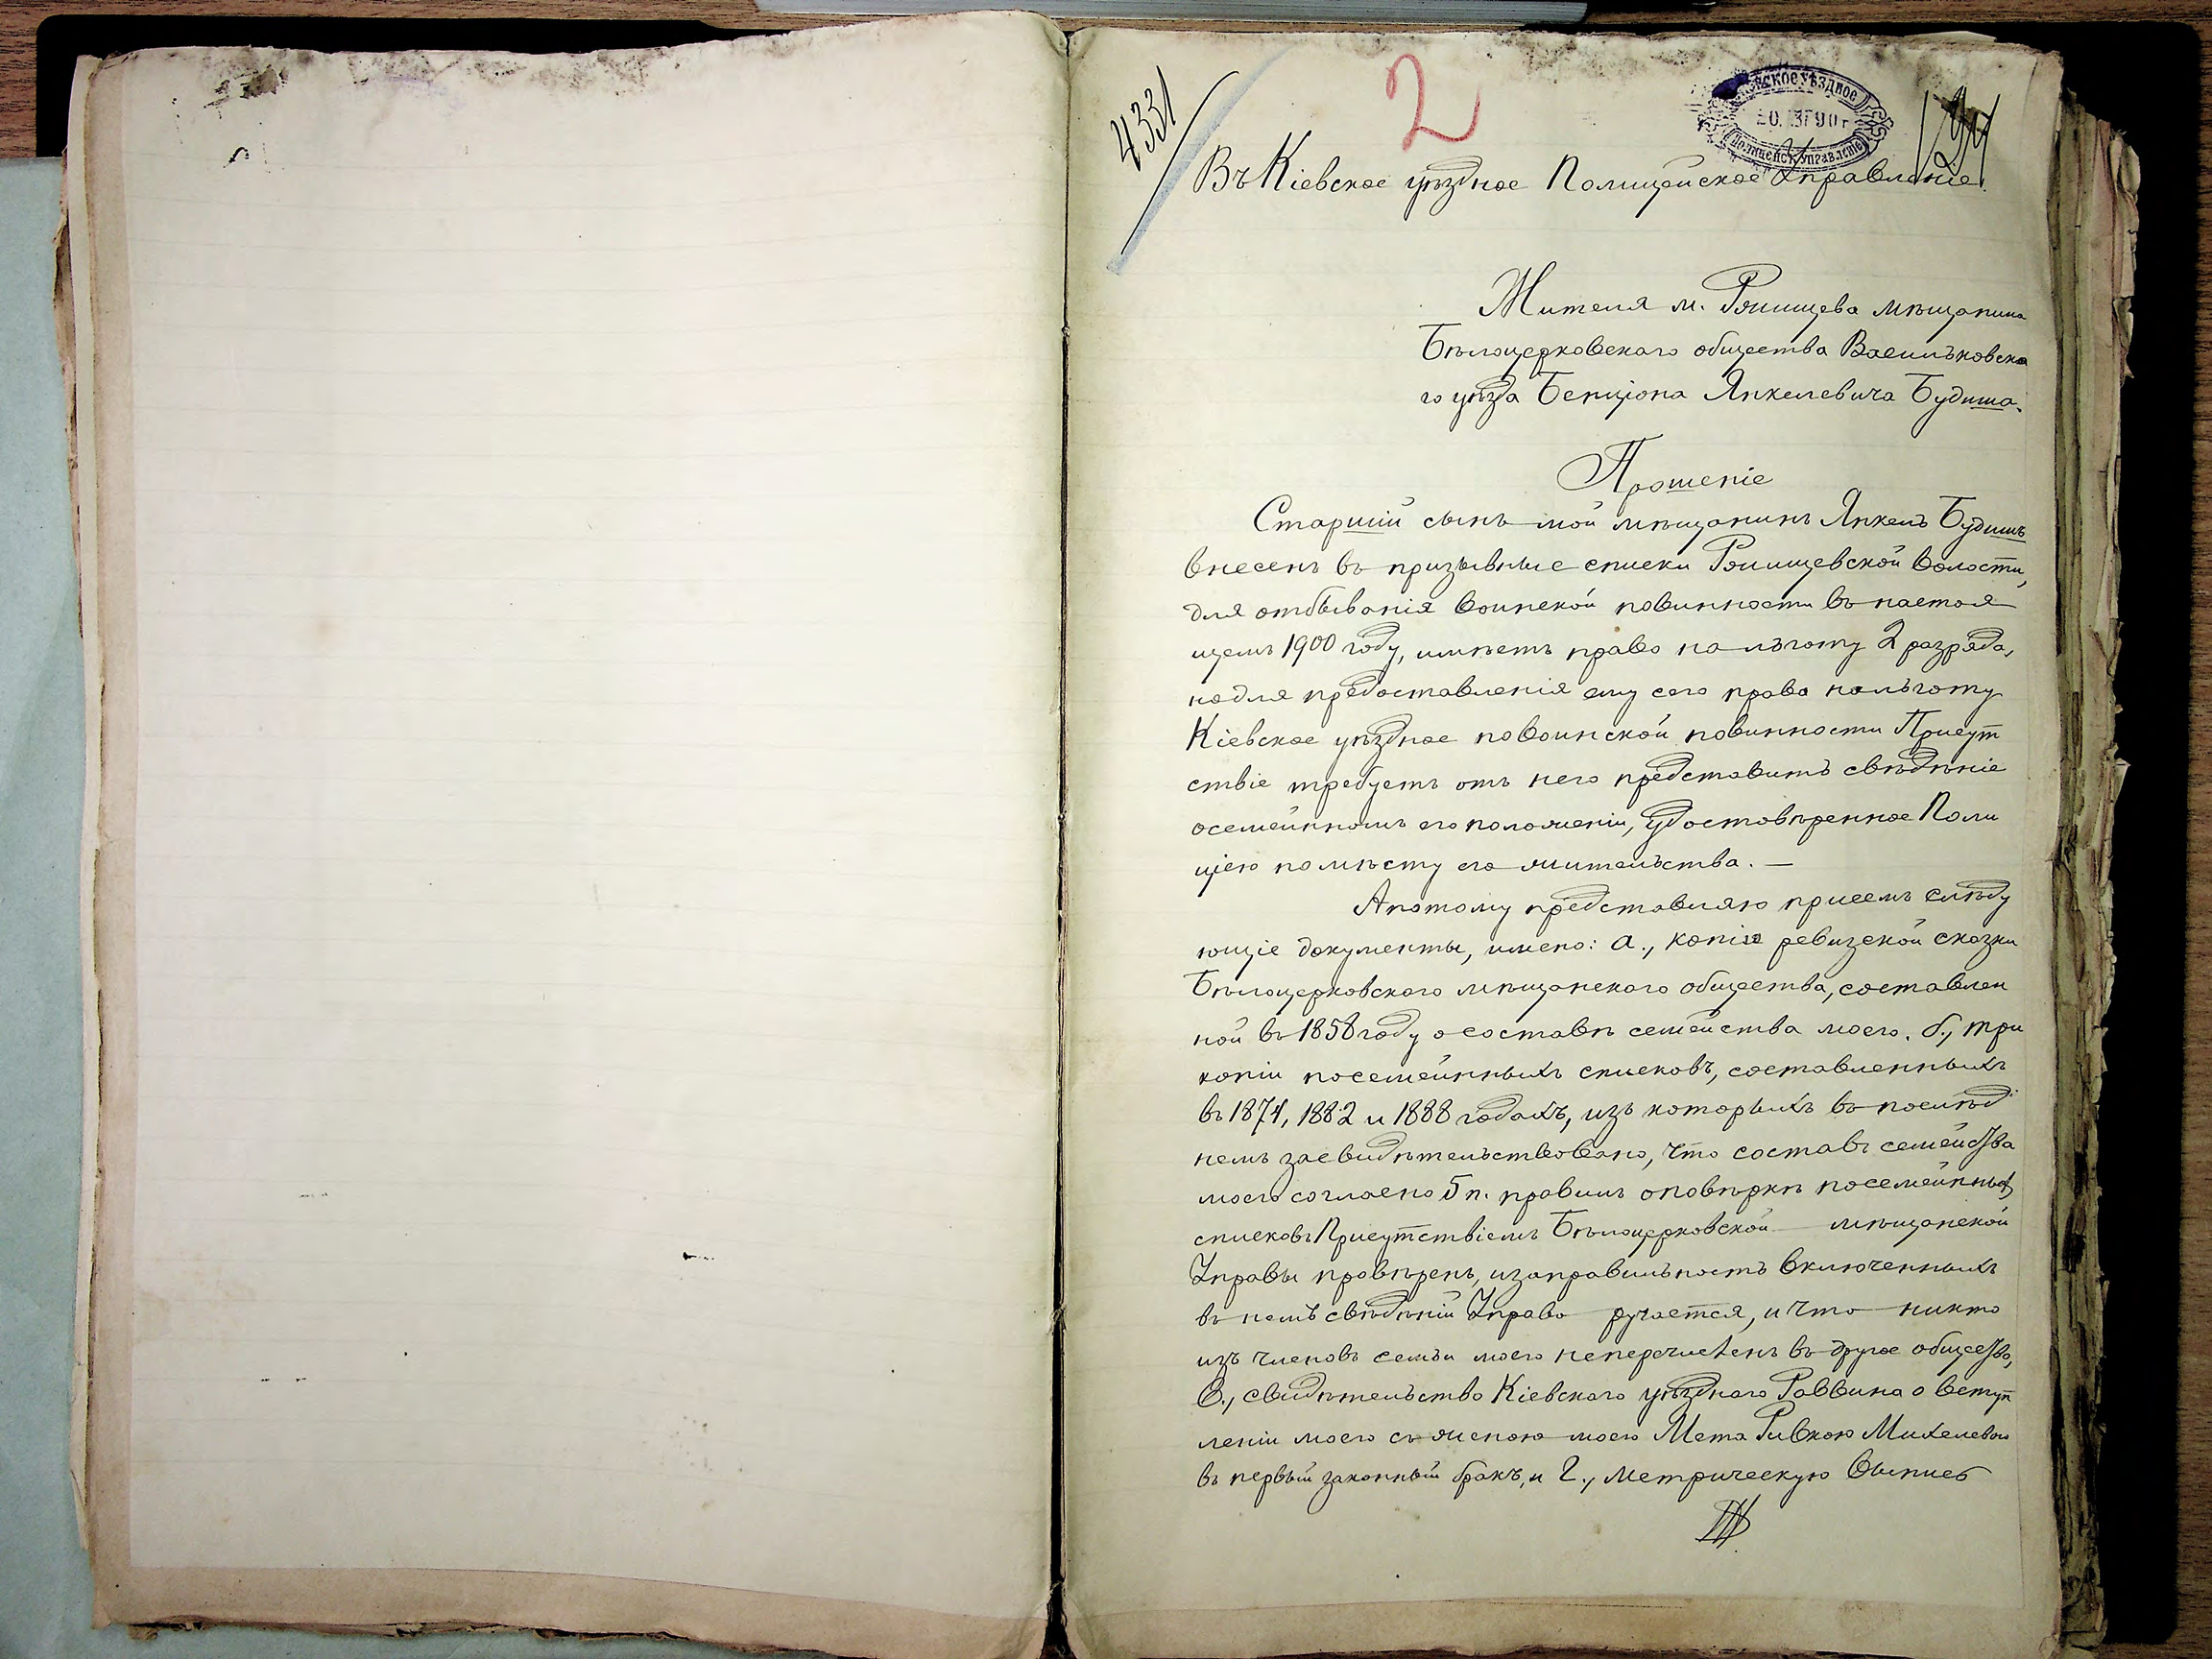 4331
2
УѢЗДНОЕ
ПОЛИЦЕЙСК. УПРАВЛЕНІЕ
Въ Кіевское уѣздное Полицейское Управленіе.
Жителя м. Ржищева мѣщанина
Бѣлоцерковскаго общества Васильковска
го уѣзда Бенціона Янкелевича Будиша.
Прошеніе
Старшій сынъ мой мѣщанинъ Янкель Будишъ
внесенъ въ призывные списки Ржищевской волости,
для отбыванія воинской повинности въ настоя
щемъ 1900 году, имѣетъ право на льготу 2 разряда,
но для предоставленія ему сего права на льготу
Кіевское уѣздное по воинской повинности Присут
ствіе требуетъ отъ него представить свѣдѣніе
о семейнномъ его положеніи, удостовѣренное Поли
ціею по мѣсту его жительства. —
А потому представляю при семъ слѣду
ющіе документы, имено: а., копія ревизской сказки
Бѣлоцерковскаго мѣщанскаго общества, составлен
ной въ 1858 году о составѣ семейства моего. б., три
копіи посемейнныхъ списковъ, составленныхъ
въ 1874, 1882 и 1888 годахъ, изъ которыхъ въ послѣд
немъ засвидѣтельствовано, что составъ семейства
моего согласно 5 п. правилъ о повѣркѣ посемейнныхъ
списковъ Присутствіемъ Бѣлоцерковской мѣщанской
Управы провѣренъ, и за правильность включенныхъ
въ немъ свѣдѣній Управа ручается, и что никто
изъ членовъ семьи моего неперечисленъ въ другое общество,
в., свидѣтельство Кіевскаго уѣзднаго Раввина о вступ
леніи моего съ женою моею Мета Ривкою Михелевою
въ первый законный бракъ, и г., метрическую выпись